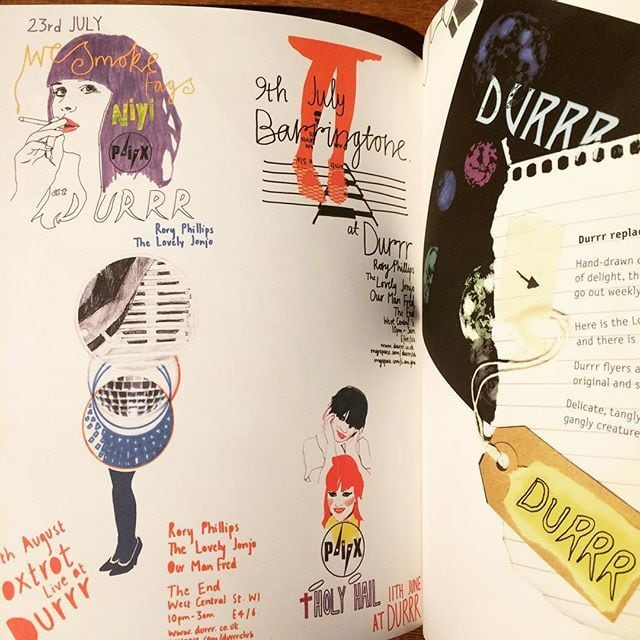 23rd JULY
We smoke
Fags
Niyi
PdifX
DURRR
Rory Phillips
The Lovely Jonjo
9th July
Barringtone.
at
Durrr
Rory Phillips
The Lovely Jonjo
Our Man Fred
The End
West Central St
10pm-3am
www.durrr.co.uk
th August
oxtrot
Live at
Durrr
Rory Phillips
The Lovely Jonjo
Our Man Fred
The End
West Central St. W1
10pm-3am £4/6.
www.durrr.co.uk
myspace.com/durrrclub
HOLY HAIL
11TH JUNE
AT DURRR
DURRR
Durrr repla
Hand-drawn
of delight, th
go out weekly
Here is the Lo
and there is
Durrr flyers a
original and s
Delicate, tangly
gangly creature
DURRR